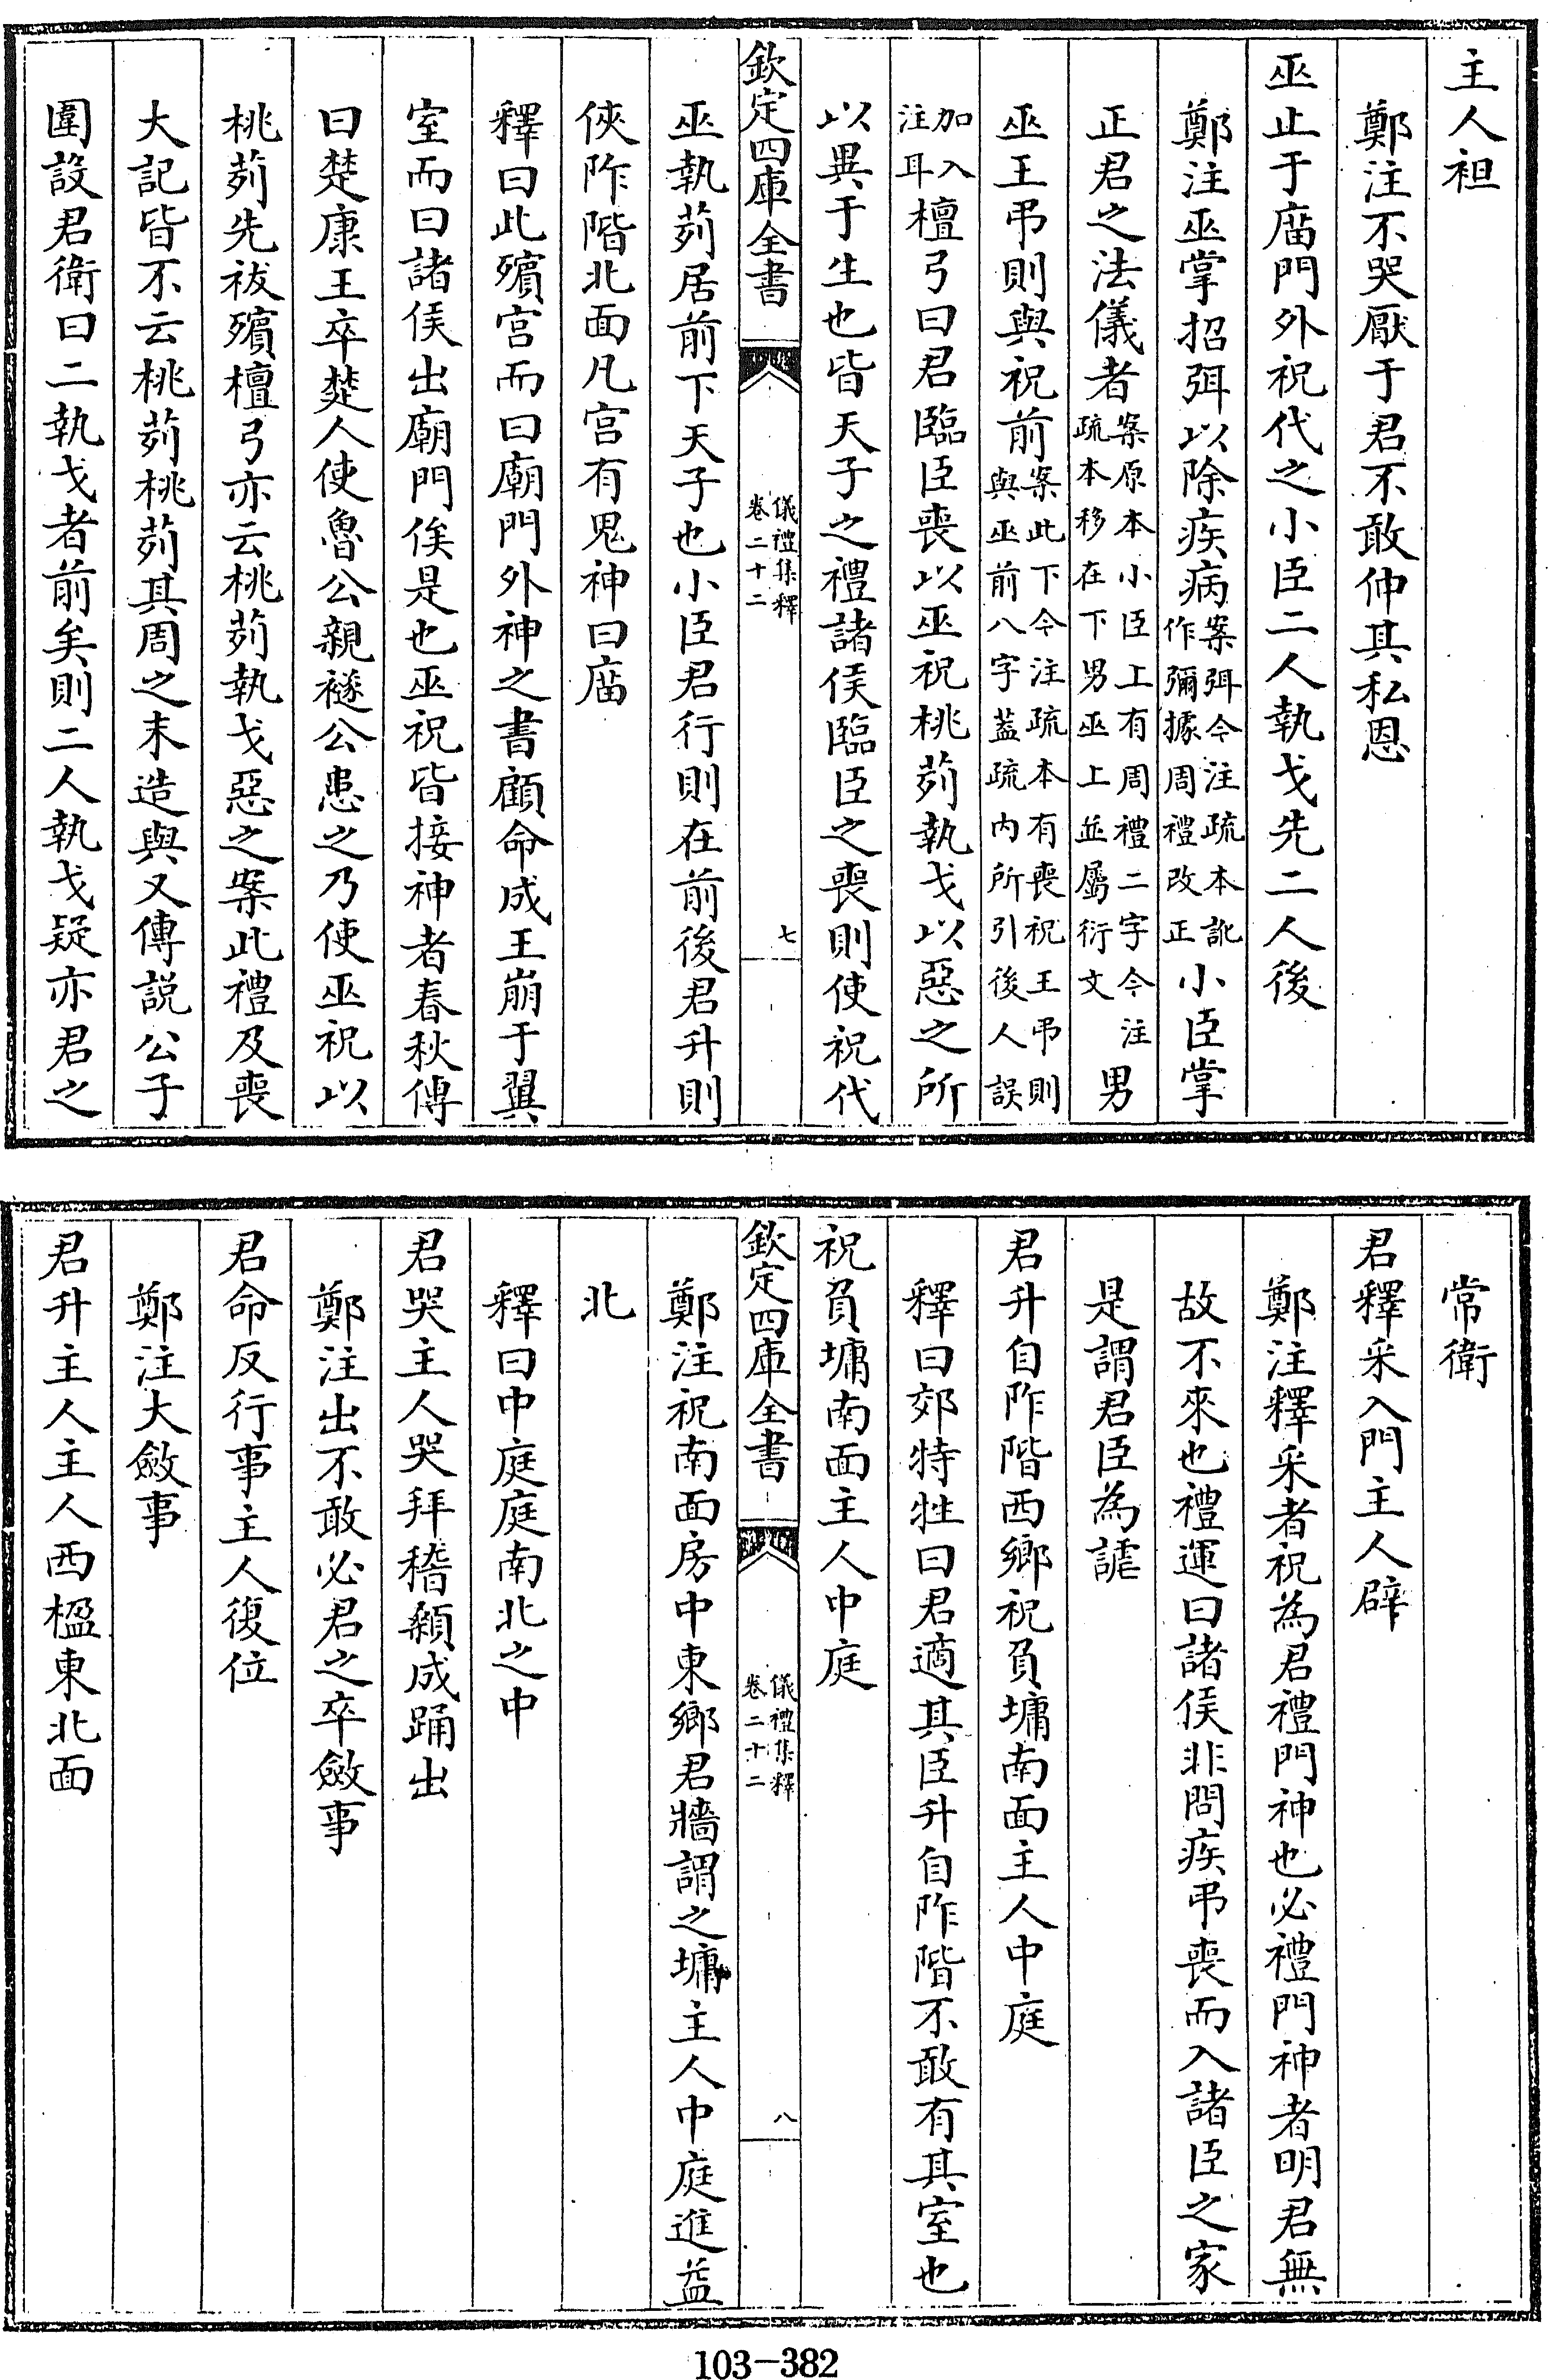 主人袒
鄭注不哭厭于君不敢伸其私恩
巫止于庿門外祝代之小臣二人執戈先二人後
鄭注巫掌招弭以除疾病案弭今注疏本訛作彌據周禮改正小臣掌
正君之法儀者案原本小臣上有周禮二字今注疏本移在下男巫上並屬衍文男
巫王弔則與祝前案此下今注疏本有喪祝王弔則與巫前八字蓋疏内所引後人誤
加入注耳檀弓曰君臨臣喪以巫祝桃茢執戈以惡之所
以異于生也皆天子之禮諸侯臨臣之喪則使祝代
欽定四庫全書
儀禮集釋
卷二十二
七
巫執茢居前下天子也小臣君行則在前後君升則
俠阼階北面凡宫有鬼神曰庿
釋曰此殯宫而曰廟門外神之書顧命成王崩于翼
室而曰諸侯出廟門俟是也巫祝皆接神者春秋傳
曰楚康王卒楚人使魯公親襚公患之乃使巫祝以
桃茢先祓殯檀弓亦云桃茢執戈惡之案此禮及喪
大記皆不云桃茢桃茢其周之末造與又傳説公子
圍設君衛曰二執戈者前矣則二人執戈疑亦君之
常衛
君釋采入門主人辟
鄭注釋采者祝為君禮門神也必禮門神者明君無
故不來也禮運曰諸侯非問疾弔喪而入諸臣之家
是謂君臣為謔
君升自阼階西鄉祝負墉南面主人中庭
釋曰郊特牲曰君適其臣升自阼階不敢有其室也
祝負墉南面主人中庭
欽定四庫全書
儀禮集釋
卷二十二
八
鄭注祝南面房中東鄉君牆謂之墉主人中庭進益
北
釋曰中庭庭南北之中
君哭主人哭拜稽顙成踊出
鄭注出不敢必君之卒斂事
君命反行事主人復位
鄭注大斂事
君升主人主人西楹東北面
103-382